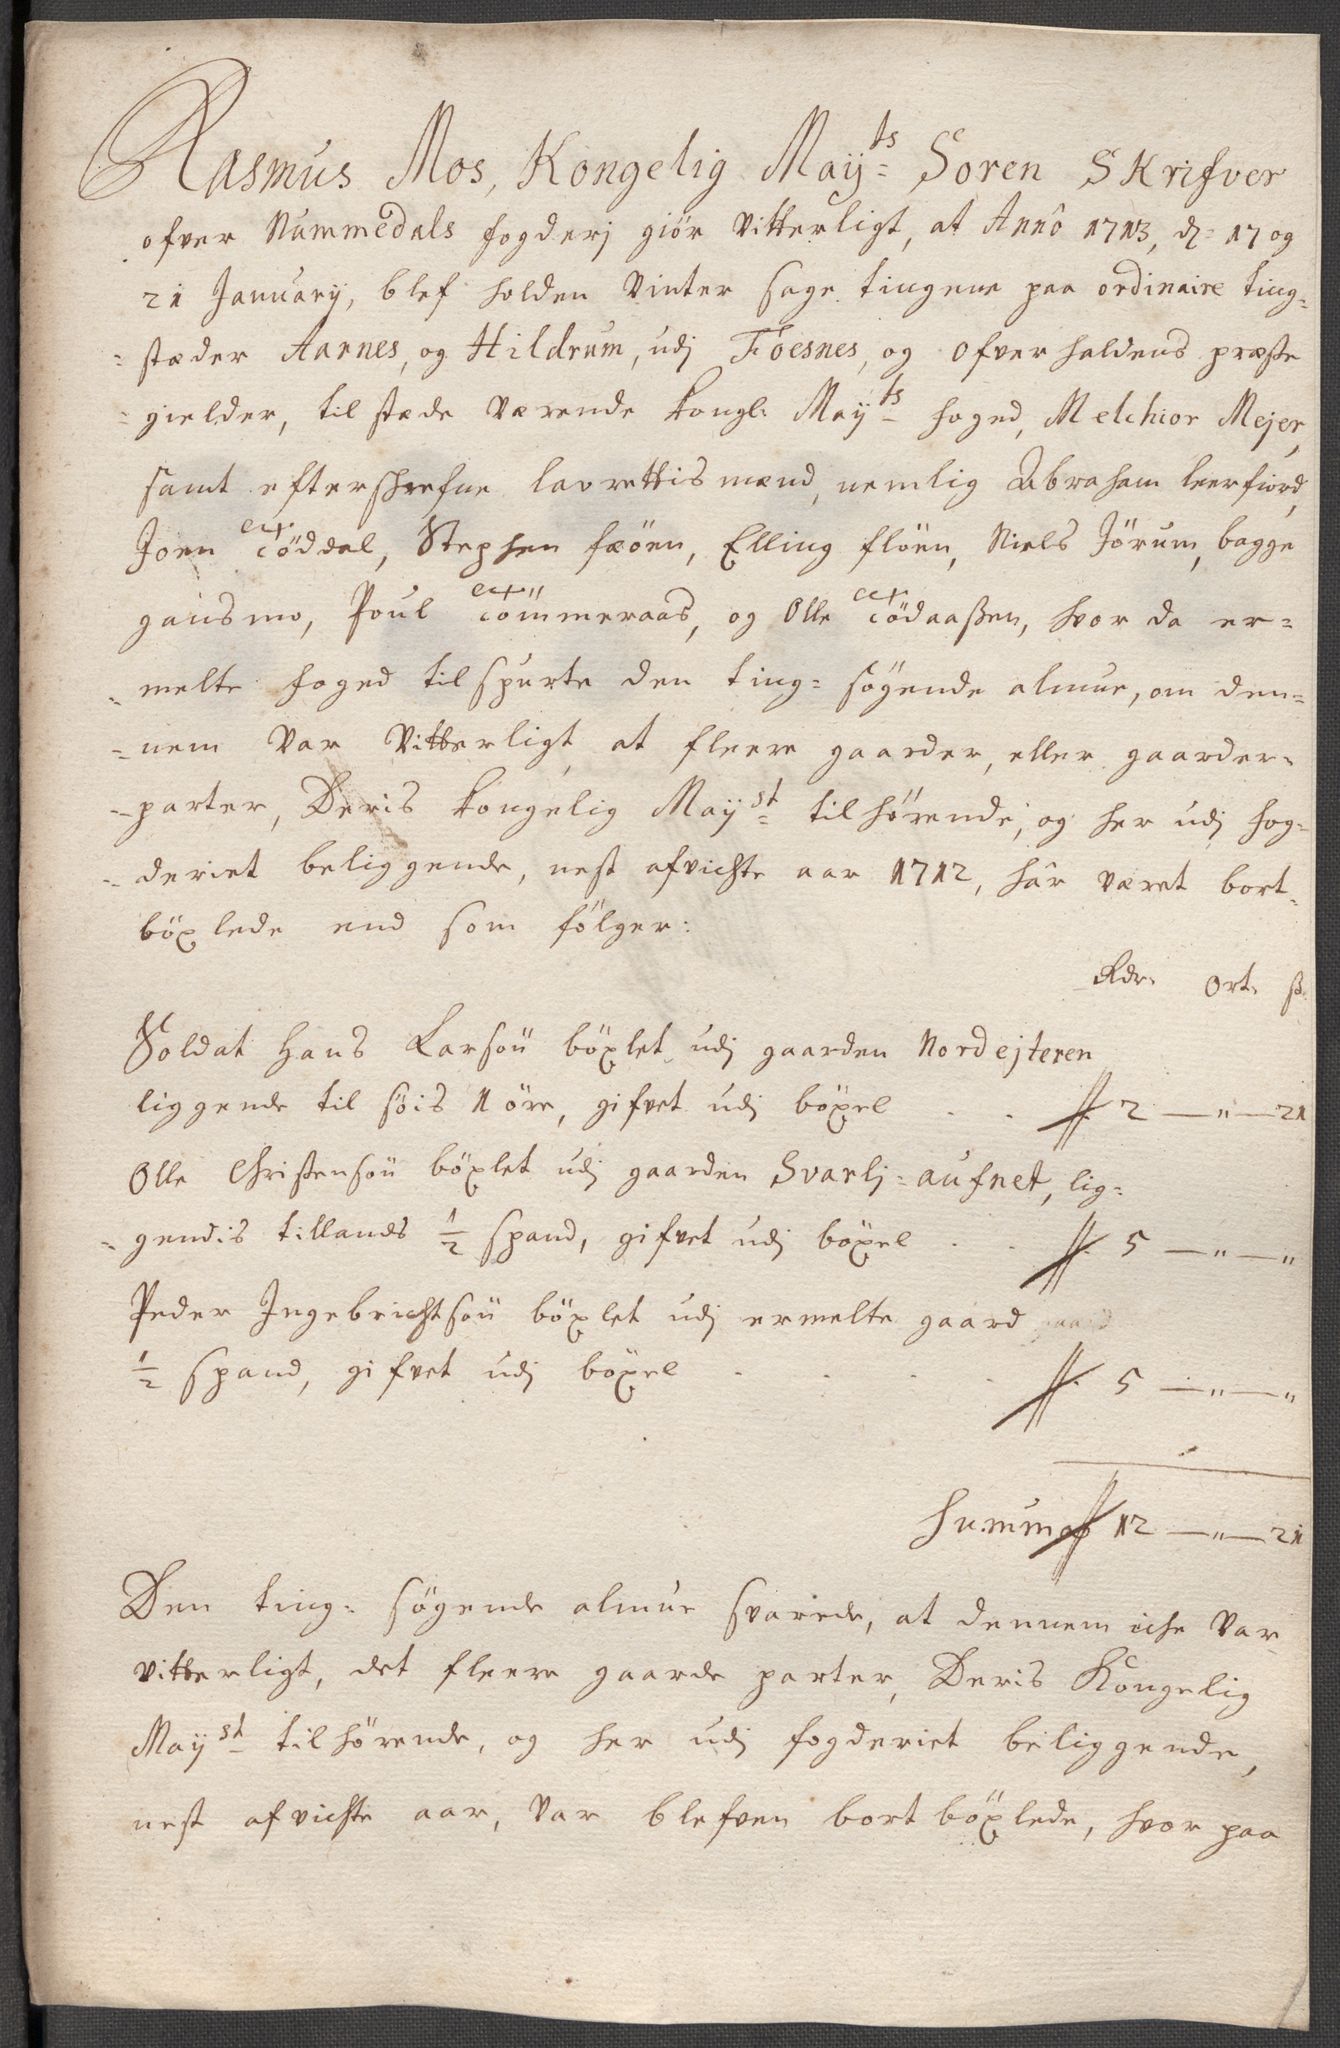 Rasmus Mos, Kongelig Maÿ:ts Soren Skrifver
ofver Nummedals fogderj giör vitterligt, at Anno 1713, d: 17 og
21 Januarij, blef holden vinter sage tingene paa ordinaire ting-
stæder Aarnes, og Hildrum, udj Foesnes, og Ofverhaldens præste
gielder, tilstæde værende kongl: Maÿts foged, Melchior Mejer,
samt efterskrefne lavrettismænd, nemlig Abraham leerfiord,
Joen Töddal, Stephen fæöen, Elling flöen, Niels Jörum, bagge
gansmo, Poul Tömmeraas, og Olle Tödaaßen, hvor da er-
melte foged tilspurte den ting-søgende almue, om den-
nem var vitterligt at fleere gaarder, eller gaarder-
parter, Deris kongelig Maÿst tilhørende, og her udj fog-
deriet beliggende, nest afvichte aar 1712, har været bort-
böxlede end som fölger:
Rdr. Ort. ß.
Soldat Hans Larsön böxlet udj gaarden Nordejteren
liggende til søis 1 öre, gifvet udj böxel . . 2 — " — 21
Olle Christensön böxlet udj gaarden Svarlj-aufnet, lig-
gendis tillands 1/2 spand, gifvet udj böxel . . 5 — " — "
Peder Ingebrichtsön böxlet udj ermelte gaard
1/2 spand, gifvet udj böxel . . . . 5 — " — "
Summa 12 — " — 21
Den ting-søgende almue svarede, at dennem iche var
vitterligt, det fleere gaarde parter, Deris Kongelig
Maÿst tilhørende, og her udj fogderiet beliggende,
nest afvichte aar, var blefven bortböxlede, hvor paa